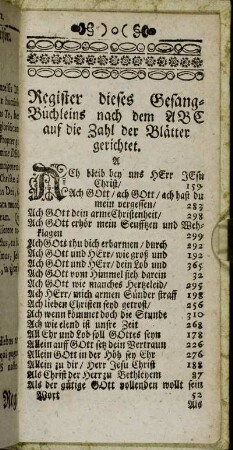 Register dieses Gesang-
Büchleins nach dem ABC
auf die Zahl der Blätter
gerichtet.
A
ACh bleib bey uns HErr JEsu
Christ/ 159
Ach GOtt/ ach GOtt/ ach hast du
mein vergessen/ 283
Ach GOtt dein arme Christenheit/ 298
Ach GOtt erhör mein Seufftzen und Weh-
klagen 299
Ach GOtt thu dich erbarmen/ durch 292
Ach GOtt und HErr/ wie groß und 192
Ach GOtt und HErr/ dein Lob und 365
Ach GOtt vom Himmel sich darein 32
Ach GOtt wie manches Hertzeleid/ 295
Ach HErr/ mich armen Sünder straff 198
Ach lieben Christen seyd getrost/ 256
Ach wenn kommet doch die Stunde 310
Ach wie elend ist unsre Zeit 268
All Ehr und Lob soll GOttes seyn 178
Allein auff GOtt setz dein Vertraun 226
Allein GOtt in der Höh sey Ehr 276
Allein zu dir/ Herr Jesu Christ 188
Als Christ der Herr zu Bethlehem 87
Als der gütige GOtt vollenden wollt sein
Wort 52
Als